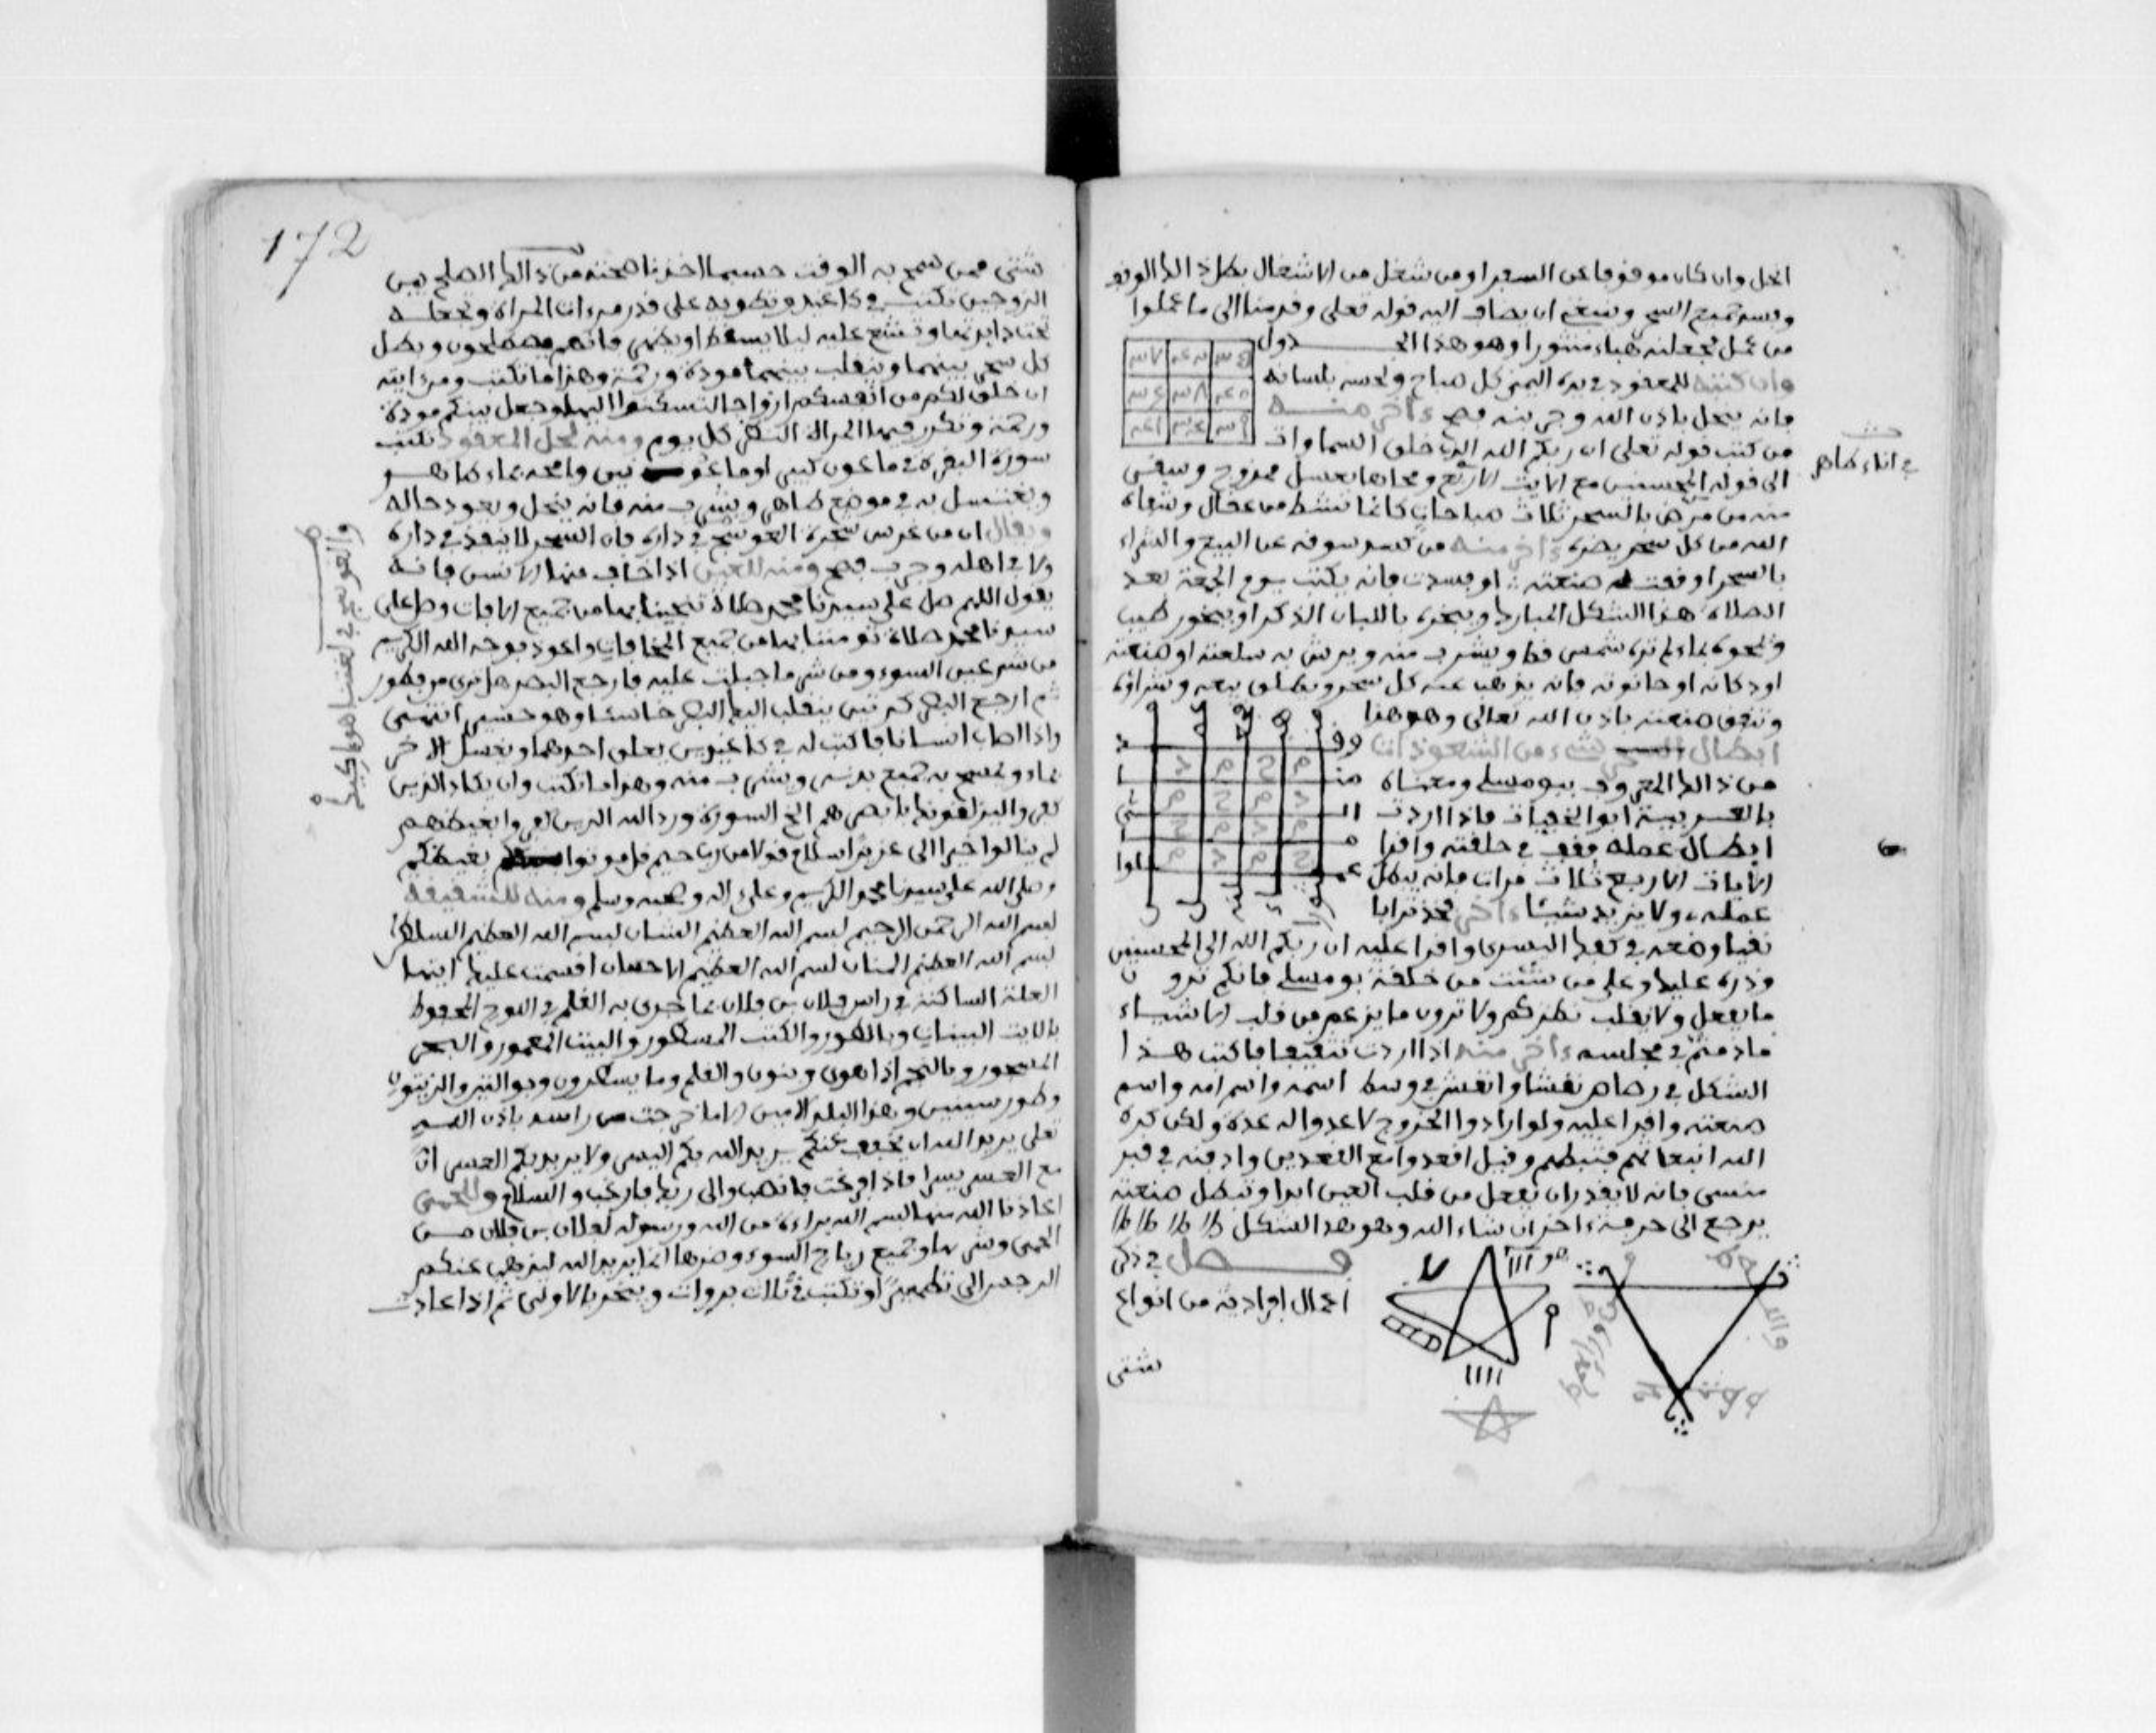 انحل وان كان موقوفا عن السفر او من شغل من الاشغال بطل ذالك الوقف
ويفسد جميع السحر وينبغي ان يضاف اليه قوله تعلى وقدمنا الى ما عملوا
من عمل فجعلنه هباء منثورا وهو هذا الجـــدول
وان كتبته للمعقود في يده اليمنى كل صباح ولحسه بلسانه
فانه ينحل باذن الله وجربته فصح ءاخر منه
من كتب قوله تعلى ان ربكم الله الذي خلق السماوات
في اناء طاهر
الى قوله المحسنين مع الايات الاربع ومحاها بعسل ممزوج وسقى
منه من مرض بالسحر ثلاث صباحات كانما نشط من عقال وشفاه
الله من كل سحر يضره ءاخر منه من كسد سوقه عن البيع والشراء
بالسحر او وقفت له صنعته او فسدت فانه يكتب يوم الجمعة بعد
الصلاة هذا الشكل المبارك ويبخره باللبان الذكر او ببخور طيب
ويمحوه بماء لم تره شمس قط ويشرب منه ويرش به سلعته او صنعته
او دكانه او حانوته فانه يذهب عنه كل سحر ويطلق بيعه وشراؤه
وتنفق صنعته باذن الله تعالى وهو هذا
ابطال شيء من الشعوذات
من ذالك المعروف ببومسلي ومعناه
بالعربية ابو الخفيات فاذا اردت
ابطال عمله فقف في حلقته واقرا
الايات الاربع ثلاث مرات فانه يبطل
عمله ولا يزيد شيئا ءاخر تخذ ترابا
نقيا وضعه في كفك اليسرى واقرا عليه ان ربكم الله الى المحسنين
وذره عليك وعلى من شئت من حلقة بومسلي فانكم ترون
ما يفعل ولا يقلب نظركم ولا ترون ما يزعم من قلب الاشياء
مادمتم في مجلسه ءاخر منه اذا اردت تثقيفا فاكتب هذا
الشكل في رصاص نقشا وانقش في وسط اسمه واسم امه واسم
صنعته واقرا عليه ولو ارادوا الخروج لاعدوا له عدة ولكن كره
الله انبعاثهم فثبطهم وقيل اقعدوا مع القعدين وادفنه في قبر
منسي فانه لا يقدر ان يفعل من قلب العين ابدا وتبطل صنعته
يرجع الى حرفة اخر ان شاء الله وهو هذا الشكل
فـــصل في ذكر
اعمال افرادية من انواع
شتى
172
شتى ممن سمح به الوقت حسبما اخذنا صحته من ذالك الصلح بين
الزوجين تكتب في كاغد وتطويه على قدر مرءات المراة وتجعله
كل سحر بينهما وينقلب بينهما مودة ورحمة وهذا ما تكتب ومن ءايته
ان خلق لكم من انفسكم ازواجا لتسكنوا اليها وجعل بينكم مودة
ورحمة وتكرر فيها المراة النظر كل يوم ومنه لحل المعقود تكتب
سورة البقرة في ماعون كبير او ماعونين وامحه بماء طاهر
ويغتسل به في موضع طاهر ويشرب منه فانه ينحل ويعود حاله
ويقال ان من غرس شجرة العوسج في داره فان السحر لا ينفذ في داره
ولا في اهله وجرب فصح ومنه للعين اذا خاف منها الانسن فانه
يقول اللهم صل على سيدنا محمد صلاة تنجينا بها من جميع الافات وصل على
سيدنا محمد صلاة تومننا بها من جميع المخافات واعوذ بوجه الله الكريم
من شر عين السوء ومن شر ما جبلت عليه فارجع البصر هل ترى من فطور
ثم ارجع البصر كرتين ينقلب اليك البصر خاسئا وهو حسير انتهى
واذا اصاب انسانا فاكتب له في كاغدين يعلق احدهما ويغسل الاخر
بماء ويمسح به جميع بدنه ويشرب منه وهذا ما تكتب وان يكاد الذين
كفروا ليزلقونك بابصرهم الخ السورة ورد الله الذين كفروا بغيظهم
لم ينالوا خيرا الى عزيزا سلام قولا من رب رحيم قل موتوا بغيظكم
وصلى الله على سيدنا محمد الكريم وعلى ءاله وصحبه وسلم ومنه للشقيقة
بسم الله الرحمن الرحيم بسم الله العظيم الشان بسم الله العظيم السلطان
بسم الله العظيم المنان بسم الله العظيم الاحسان اقسمت عليك ايتها
العلة الساكنة في راس فلان بن فلان بما جرى به القلم في اللوح المحفوظ
بالايت البينات وبالطور والكتب المسطور والبيت المعمور والبحر
المسجور وبالنجم اذا هوى وبنون والقلم وما يسطرون وبو التين والزيتون
وطور سينين وهذا البلد الامين الا ما خرجت من راسه باذن الله
تعلى يريد الله ان يخفف عنكم يريد الله بكم اليسر ولا يريد بكم العسر ان
مع العسر يسرا فاذا فرغت فانصب والى ربك فارغب والسلام وللحمى
اعاذنا الله منها بسم الله براءة من الله ورسوله لفلان بن فلان من
الحمى وشرها وجميع رياح السوء وضرها انما يريد الله ليذهب عنكم
الرجس الى تطهيرا وتكتب في ثلاث بروات ويبخر بالاولى ثم اذا عادت